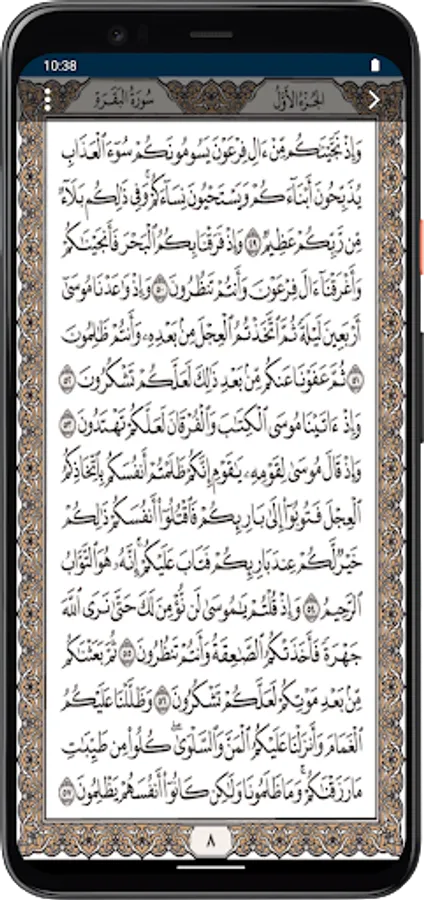 10:38
سُورَةُ البَقَرَةِ الجُزْءُ الأَوَّلُ
وَإِذْ نَجَّيْنَٰكُم مِّنْ ءَالِ فِرْعَوْنَ يَسُومُونَكُمْ سُوٓءَ ٱلْعَذَابِ
يُذَبِّحُونَ أَبْنَآءَكُمْ وَيَسْتَحْيُونَ نِسَآءَكُمْ ۚ وَفِى ذَٰلِكُم بَلَآءٌ
مِّن رَّبِّكُمْ عَظِيمٌ ٤٩ وَإِذْ فَرَقْنَا بِكُمُ ٱلْبَحْرَ فَأَنجَيْنَٰكُمْ
وَأَغْرَقْنَآ ءَالَ فِرْعَوْنَ وَأَنتُمْ تَنظُرُونَ ٥٠ وَإِذْ وَٰعَدْنَا مُوسَىٰٓ
أَرْبَعِينَ لَيْلَةً ثُمَّ ٱتَّخَذْتُمُ ٱلْعِجْلَ مِنۢ بَعْدِهِۦ وَأَنتُمْ ظَٰلِمُونَ
٥١ ثُمَّ عَفَوْنَا عَنكُم مِّنۢ بَعْدِ ذَٰلِكَ لَعَلَّكُمْ تَشْكُرُونَ ٥٢
وَإِذْ ءَاتَيْنَا مُوسَى ٱلْكِتَٰبَ وَٱلْفُرْقَانَ لَعَلَّكُمْ تَهْتَدُونَ ٥٣
وَإِذْ قَالَ مُوسَىٰ لِقَوْمِهِۦ يَٰقَوْمِ إِنَّكُمْ ظَلَمْتُمْ أَنفُسَكُم بِٱتِّخَاذِكُمُ
ٱلْعِجْلَ فَتُوبُوٓا۟ إِلَىٰ بَارِئِكُمْ فَٱقْتُلُوٓا۟ أَنفُسَكُمْ ذَٰلِكُمْ
خَيْرٌ لَّكُمْ عِندَ بَارِئِكُمْ فَتَابَ عَلَيْكُمْ ۚ إِنَّهُۥ هُوَ ٱلتَّوَّابُ
ٱلرَّحِيمُ ٥٤ وَإِذْ قُلْتُمْ يَٰمُوسَىٰ لَن نُّؤْمِنَ لَكَ حَتَّىٰ نَرَى ٱللَّهَ
جَهْرَةً فَأَخَذَتْكُمُ ٱلصَّٰعِقَةُ وَأَنتُمْ تَنظُرُونَ ٥٥ ثُمَّ بَعَثْنَٰكُم
مِّنۢ بَعْدِ مَوْتِكُمْ لَعَلَّكُمْ تَشْكُرُونَ ٥٦ وَظَلَّلْنَا عَلَيْكُمُ
ٱلْغَمَامَ وَأَنزَلْنَا عَلَيْكُمُ ٱلْمَنَّ وَٱلسَّلْوَىٰ ۖ كُلُوا۟ مِن طَيِّبَٰتِ
مَا رَزَقْنَٰكُمْ ۖ وَمَا ظَلَمُونَا وَلَٰكِن كَانُوٓا۟ أَنفُسَهُمْ يَظْلِمُونَ ٥٧
٨